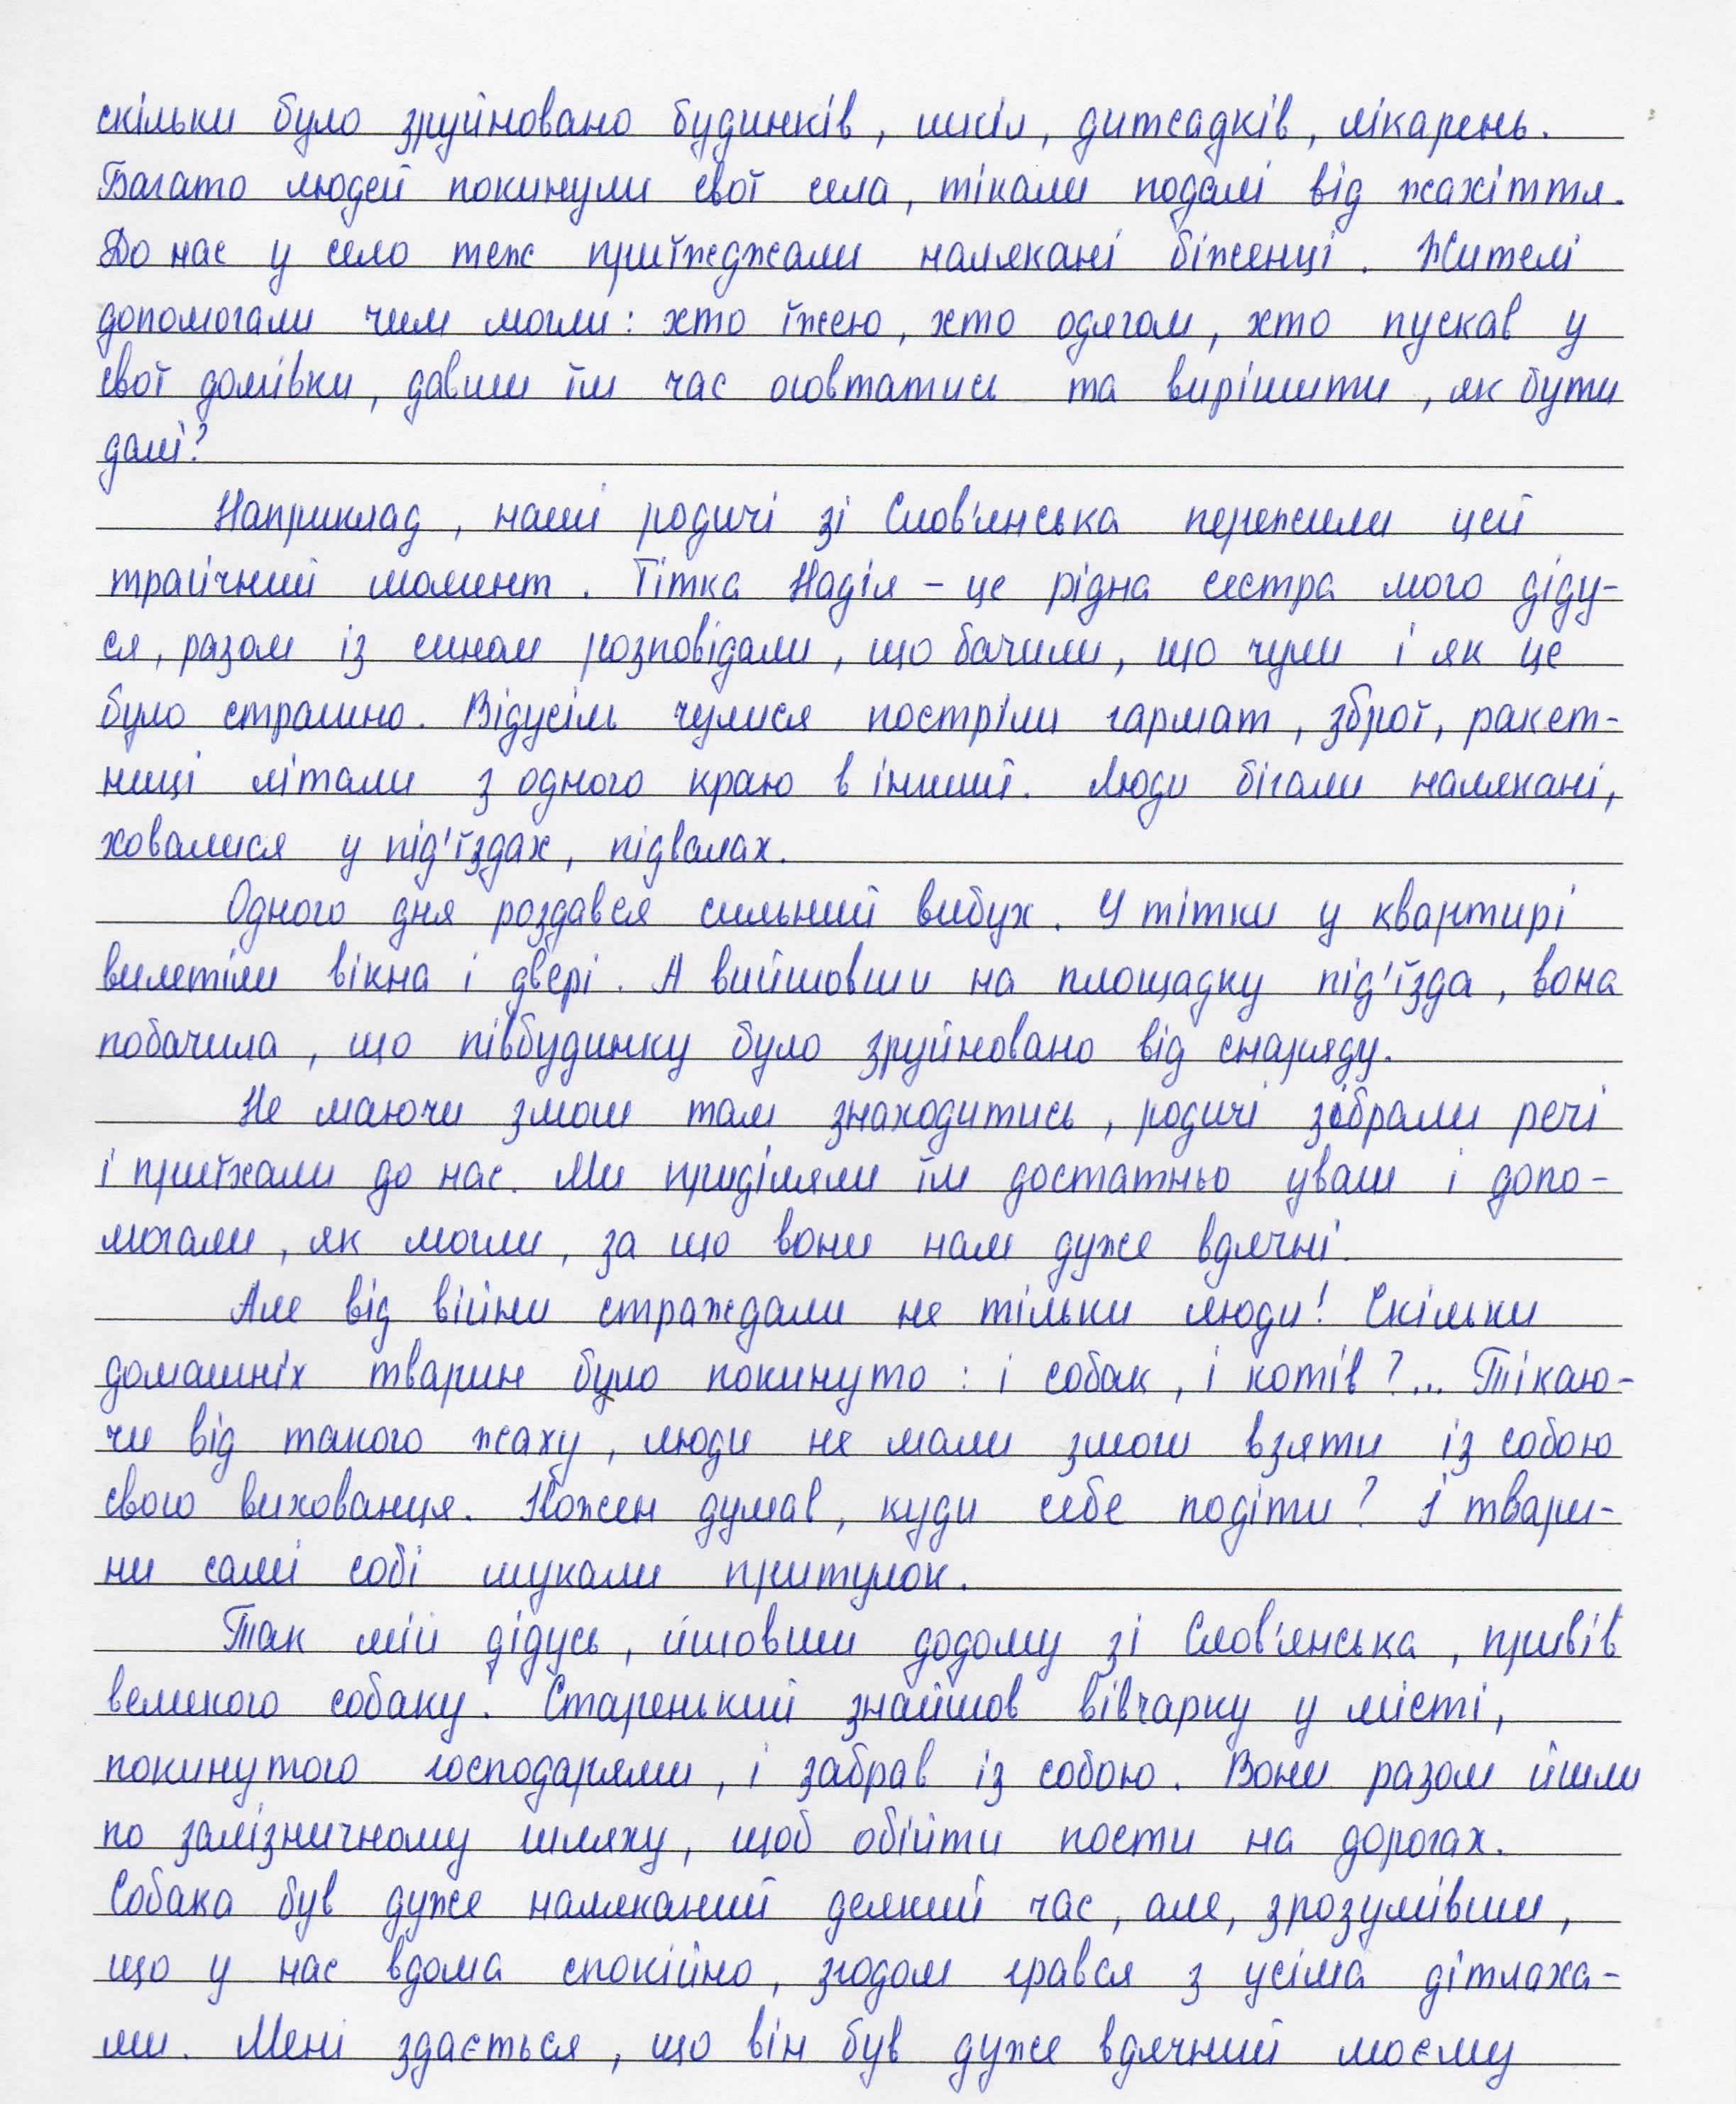 скільки було зруйновано будинків, шкіл, дитсадків, лікарень.
Багато людей покинули свої села, тікали подалі від жахіття.
До нас у село теж приїжджали налякані біженці. Жителі
допомогали чим могли: хто їжею, хто одягом, хто пускав у
свої домівки, давши їм час оговтатись та вирішити, як бути
далі?
Наприклад, наші родичі зі Слов'янська пережили цей
трагічний момент. Тітка Надія – це рідна сестра мого діду-
ся, разом із сином розповідали, що бачили, що чули і як це
було страшно. Відусіль чулися постріли гармат, зброї, ракет-
ниці літали з одного краю в інший. Люди бігали налякані,
ховалися у під'їздах, підвалах.
Одного дня роздався сильний вибух. У тітки у квартирі
вилетіли вікна і двері. А вийшовши на площадку під'їзда, вона
побачила, що півбудинку було зруйновано від снаряду.
Не маючи змоги там знаходитись, родичі зібрали речі
і приїхали до нас. Ми приділяли їм достатньо уваги і допо-
могали, як могли, за що вони нам дуже вдячні.
Але від війни страждали не тільки люди! Скільки
домашніх тварин було покинуто: і собак, і котів?... Тікаю-
чи від такого жаху, люди не мали змоги взяти із собою
свого вихованця. Кожен думав, куди себе подіти? І твари-
ни самі собі шукали притулок.
Так мій дідусь, йшовши додому зі Слов'янська, привів
великого собаку. Старенький знайшов вівчарку у місті,
покинутого господарями, і забрав із собою. Вони разом йшли
по залізничному шляху, щоб обійти пости на дорогах.
Собака був дуже наляканий деякий час, але, зрозумівши,
що у нас вдома спокійно, згодом грався з усіма дітлаха-
ми. Мені здається, що він був дуже вдячний моєму